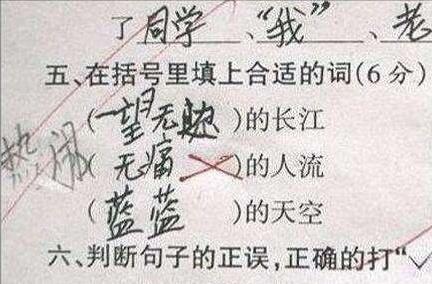 了同学、“我”、老
五、在括号里填上合适的词(6分)
(一望无边)的长江
热闹
(无痛)的人流
(蓝蓝)的天空
六、判断句子的正误,正确的打“✓